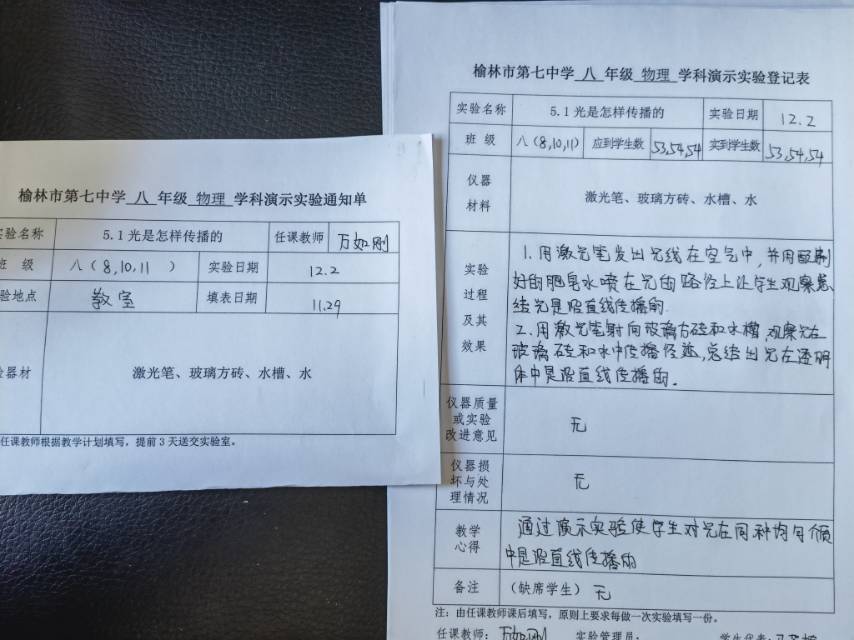 榆林市第七中学 八 年级 物理 学科演示实验通知单
实验名称 5.1光是怎样传播的 任课教师 万如刚
班 级 八(8,10,11 ) 实验日期 12.2
验地点 教室 填表日期 11.29
验器材 激光笔、玻璃方砖、水槽、水
任课教师根据教学计划填写，提前3天送交实验室。
榆林市第七中学 八 年级 物理 学科演示实验登记表
实验名称 5.1光是怎样传播的 实验日期 12.2
班 级 八(8,10,11) 应到学生数 53,54,54 实到学生数 53,54,54
仪器
材料
激光笔、玻璃方砖、水槽、水
实验
过程
及其
效果
1.用激光笔发出光线在空气中,并用配制
好的肥皂水喷在光的路径上让学生观察总
结光是沿直线传播的.
2.用激光笔射向玻璃方砖和水槽,观察光在
玻璃砖和水中传播径迹,总结出光在透明
体中是沿直线传播的.
仪器质量
或实验
改进意见
无
仪器损
坏与处
理情况
无
教学
心得
通过演示实验使学生对光在同种均匀介质
中是沿直线传播的
备注 (缺席学生) 无
注：由任课教师课后填写，原则上要求每做一次实验填写一份。
任课教师： 万如刚 实验管理员： 学生代表：